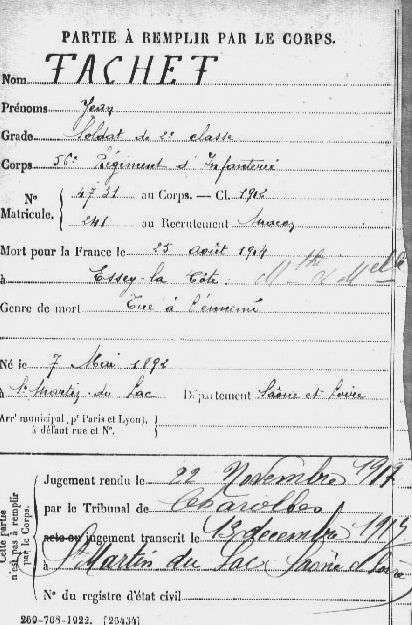 PARTIE À REMPLIR PAR LE CORPS.
Nom TACHET
Prénoms Jean
Grade Soldat de 2e classe
Corps 56e Régiment d'Infanterie
N° Matricule. { 4731 au Corps. — Cl. 1912
241 au Recrutement Macon
Mort pour la France le 25 août 1914
à Essey-la Côte. Mthe et Melle
Genre de mort Tué à l'ennemi
Né le 7 Mai 1892
à St Martin-du Lac Département Saône et Loire
Arrt municipal (pr Paris et Lyon), }
à défaut rue et N°.
Cette partie n'est pas à remplir par le Corps.
Jugement rendu le 22 Novembre 1917
par le Tribunal de Charolles
acte ou jugement transcrit le 13 décembre 1917
à St Martin du Lac Saône et Loire
N° du registre d'état civil
269-708-1922. [26434]